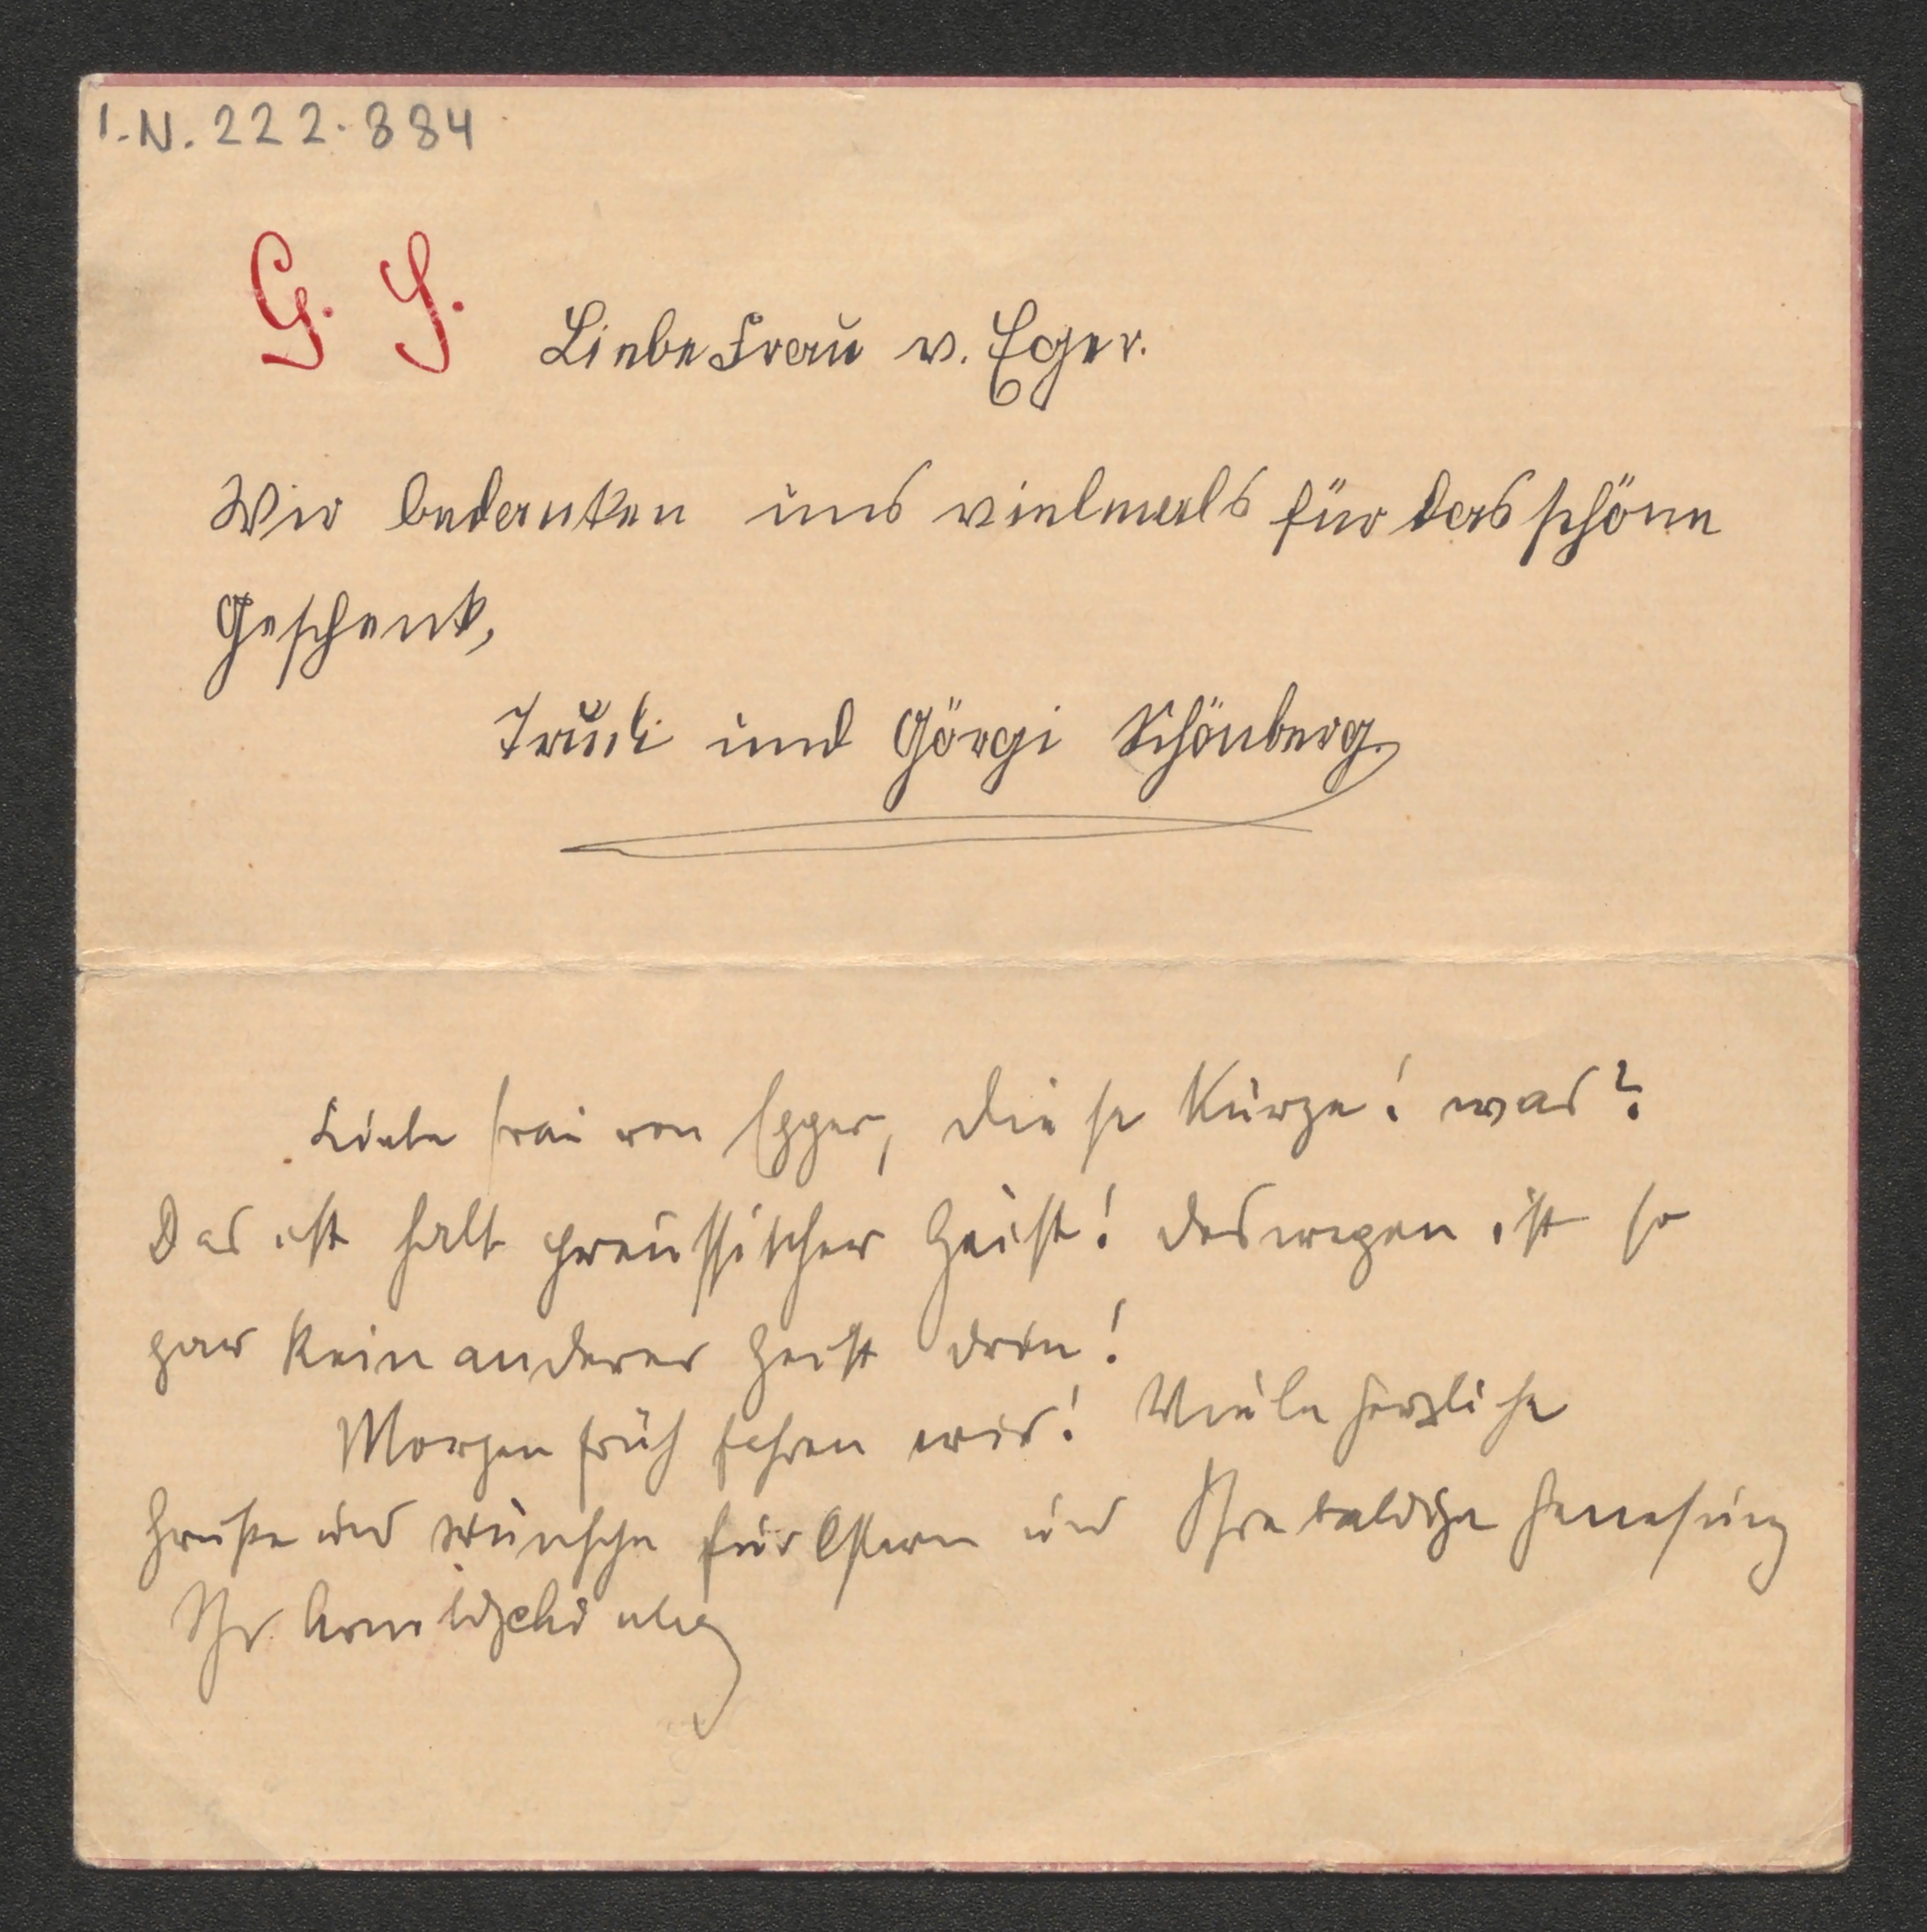 I.N. 222.884
G. S.
Liebe Frau v. Eger.
Wir bedanken uns vielmals für das schöne
Geschenk,
Trudi und Görgi Schönberg
Liebe Frau von Egger, diese Kürze! was?
Das ist halt preussischer Geist! deswegen ist so
gar kein anderer Geist drin!
Morgen früh fahren wir! Viele herzliche
Grüße und Wünsche für Ostern und Ihre baldige Genesung
Ihr Arnold Schönberg